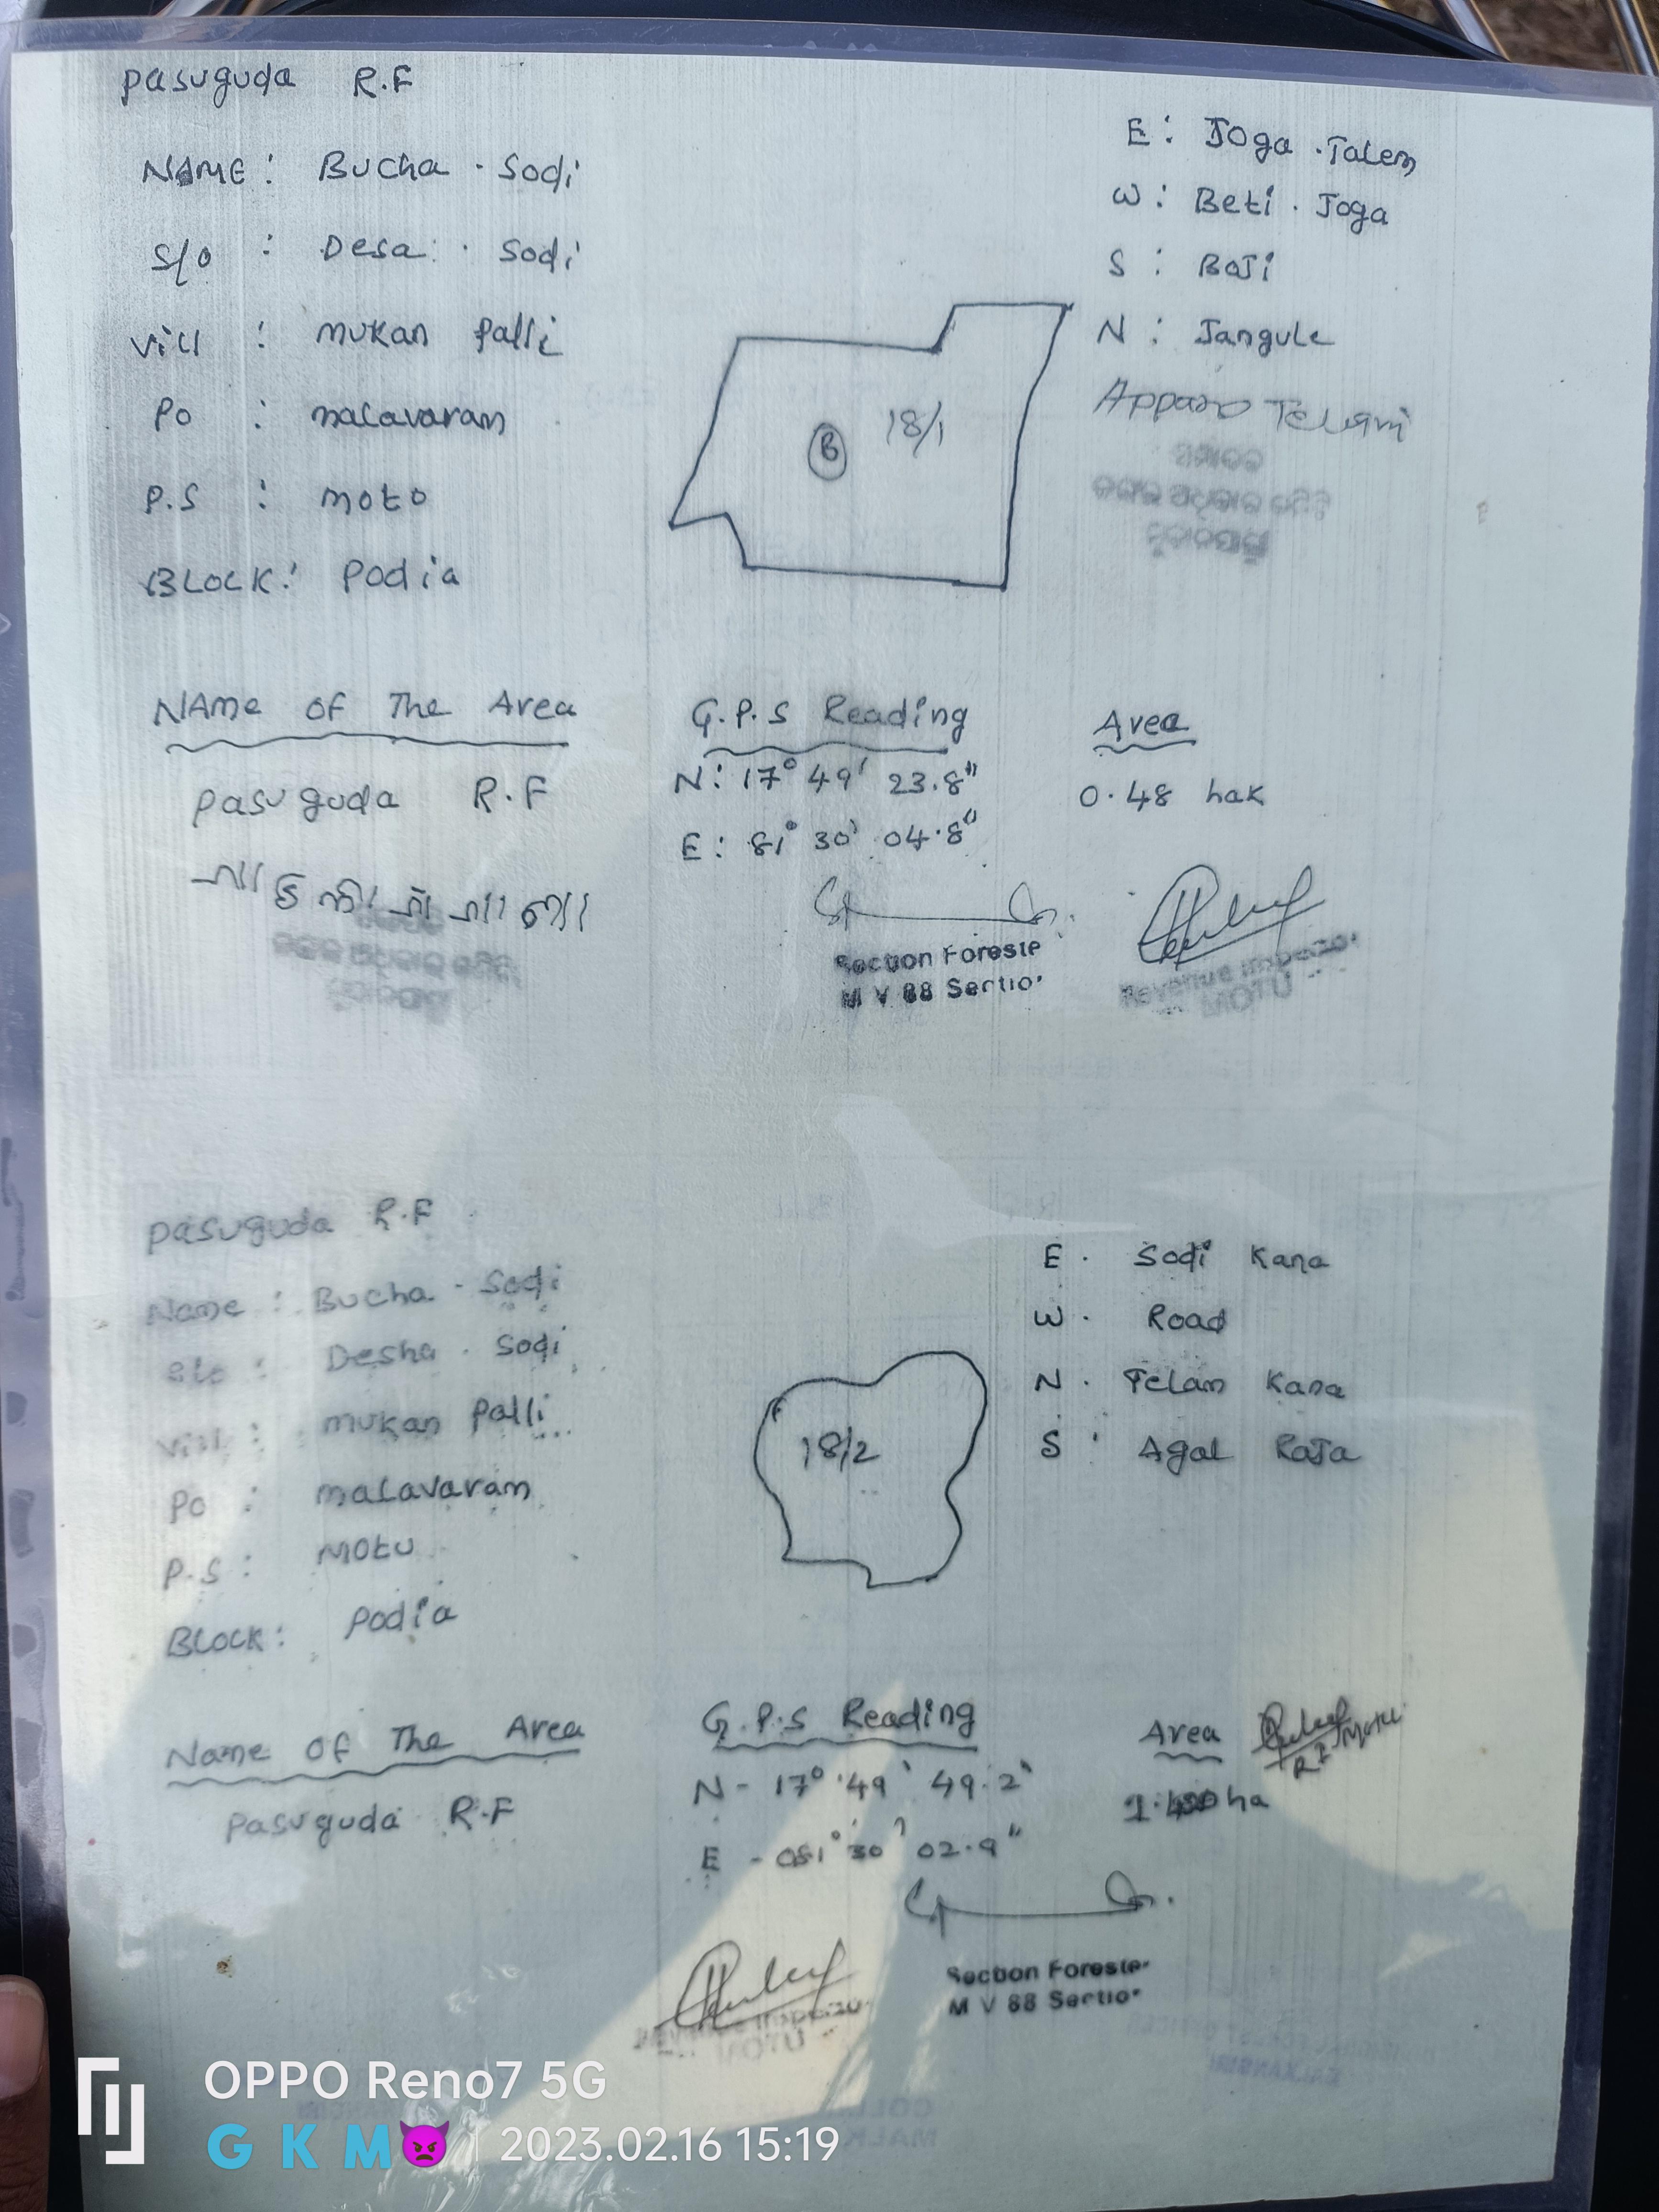 Pasuguda R.F
NAME : Bucha . Sodi
S/o : Desa . Sodi
Vill : mukan palli
Po : malavaram
P.S : moto
BLOCK : Podia
E : Joga . Talem
W : Beti . Joga
S : BoJi
N : Jangule
Apparo Telami
B
18/1
NAme of The Area
G.P.S Reading
Area
Pasuguda R.F
N : 17° 49' 23.8"
0.48 hak
E : 81° 30' 04.8"
Section Foreste
M V 88 Sectio
Revenue Inspector
MOTU
Pasuguda R.F
Name : Bucha - Sodi
S/o : Desha . Sodi
Vill : mukan palli
Po : malavaram
P.S : Motu
BLOCK : Podia
E . Sodi Kana
W . Road
N . Telam Kana
S : Agal RaJa
18/2
Name of The Area
G.P.S Reading
Area
R I Motu
Pasuguda R.F
N - 17° 49' 49.2"
ha
E - 081° 30' 02.9"
Section Foreste
M V 88 Sectio
Revenue Inspector
MOTU
OPPO Reno7 5G
G K M😈 | 2023.02.16 15:19